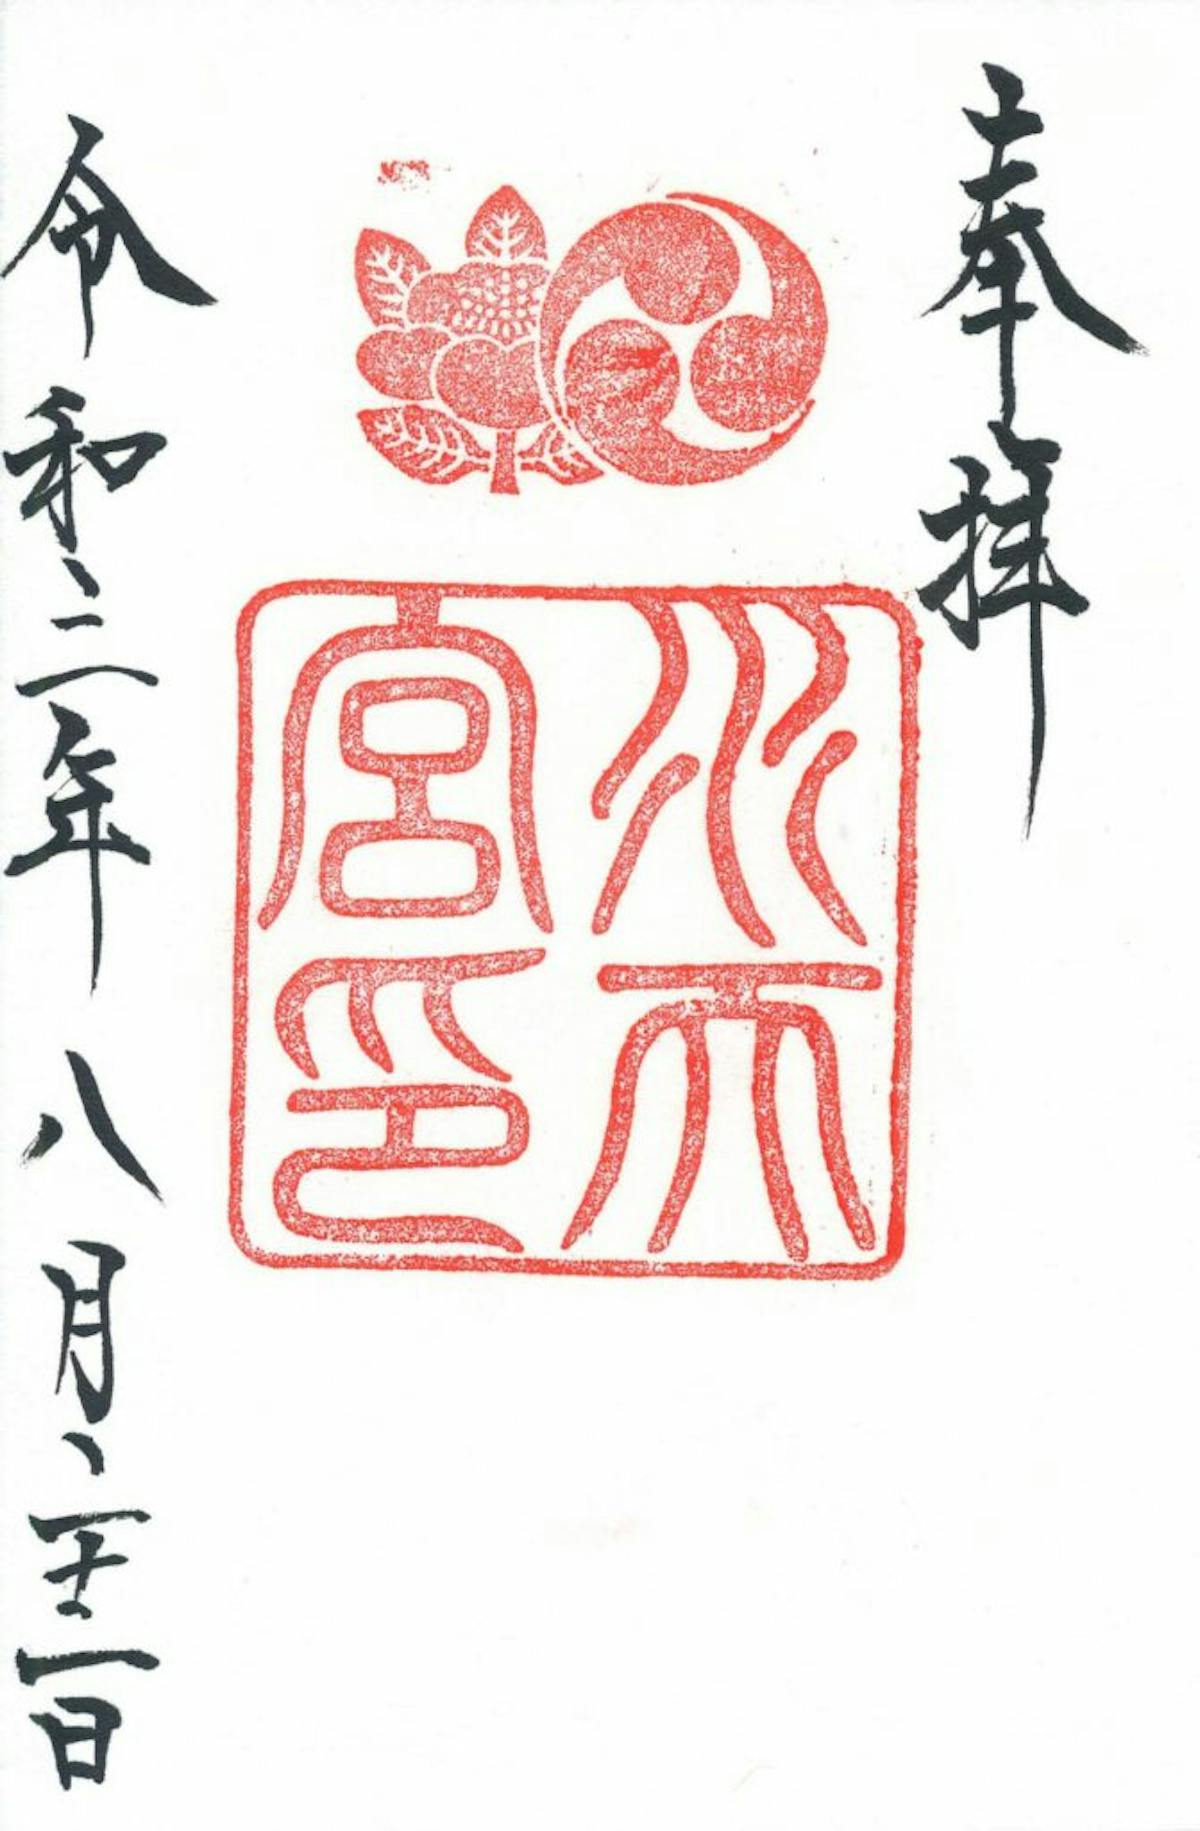 奉拝
水天
宮印
令和三年八月二十二日